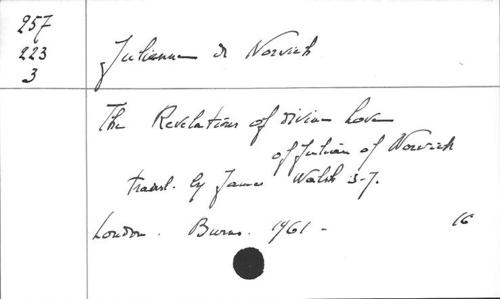 257
223
3
Julienne de Norwich
The Revelations of divine Love
of Julian of Norwich
transl. by James Walsh S-J.
London. Burns. 1961 -
16